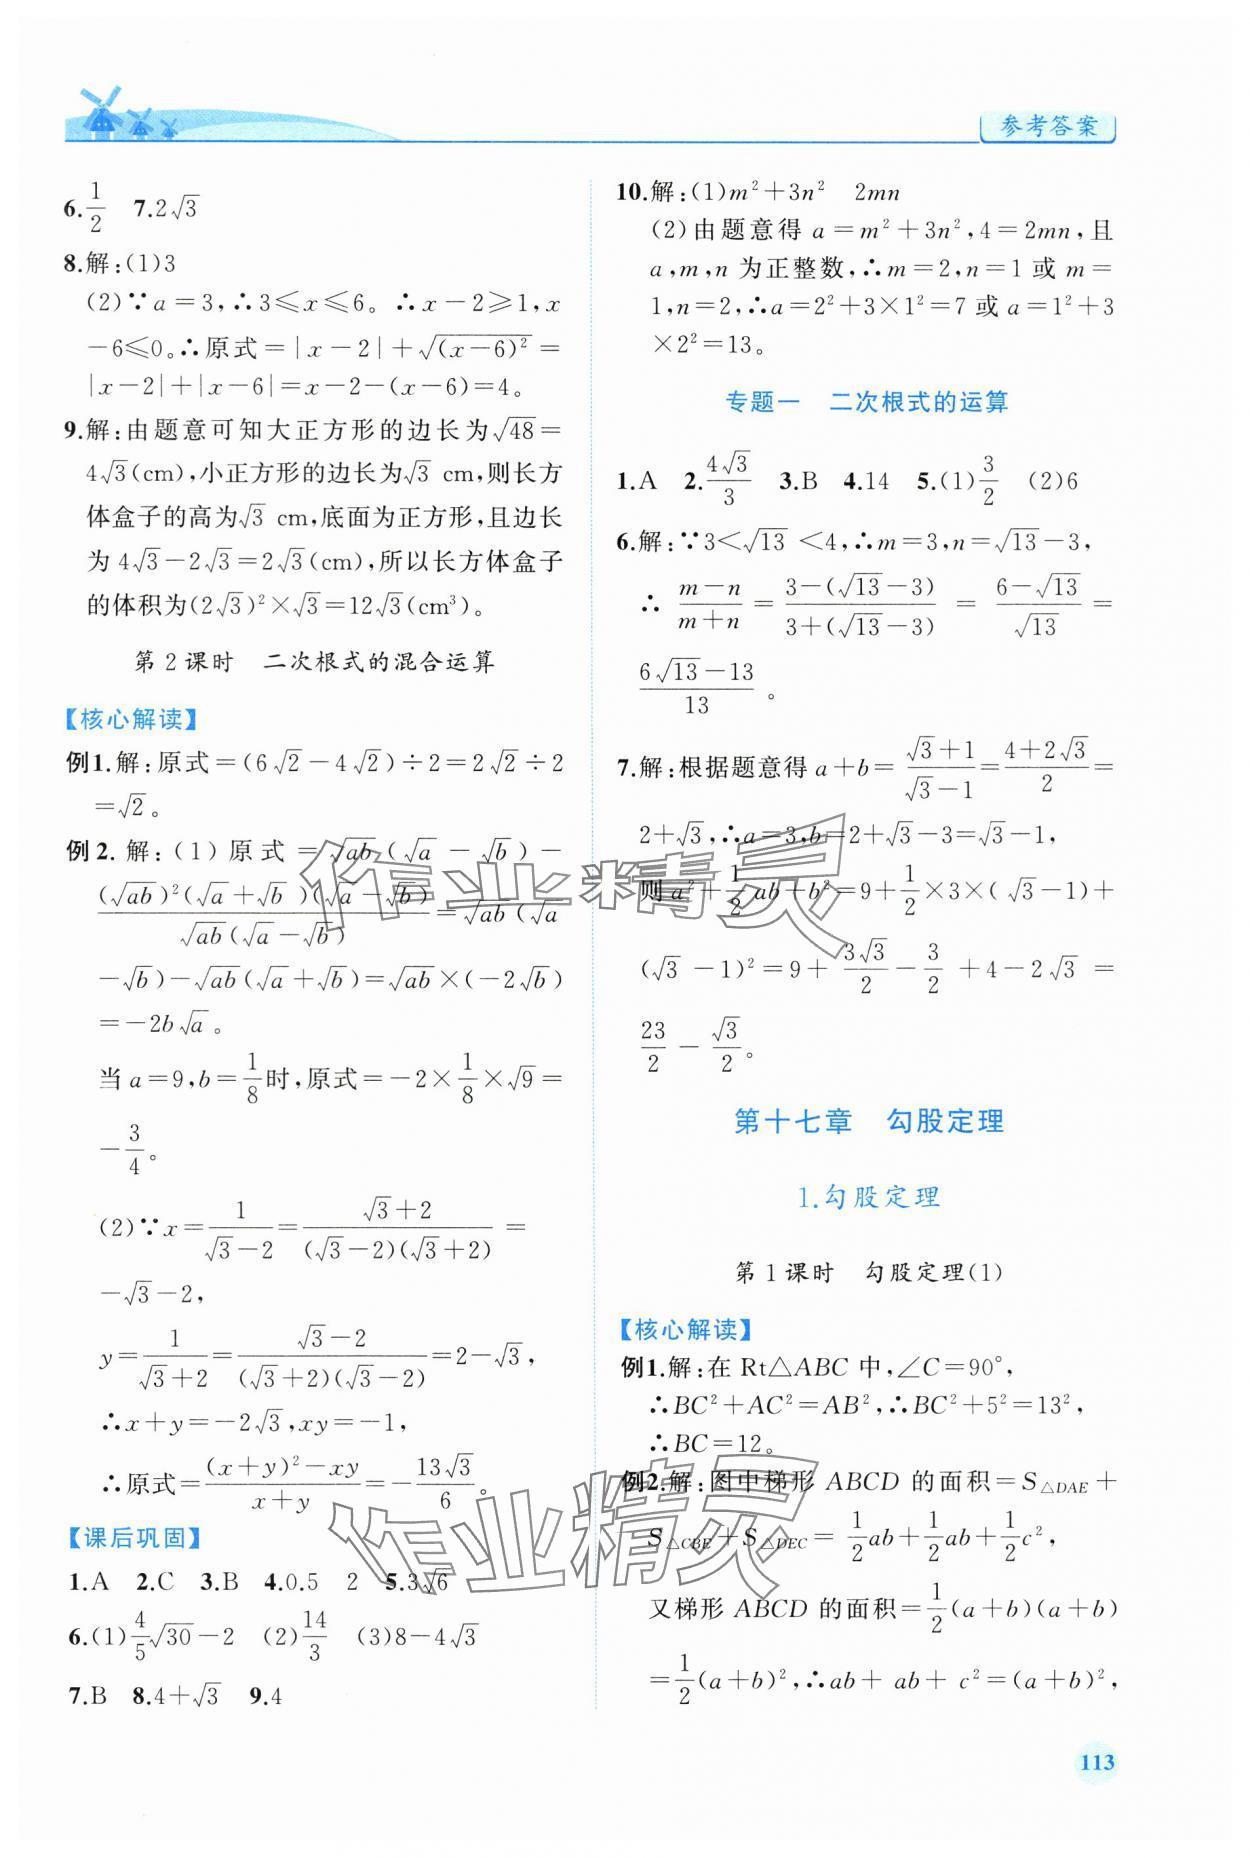 参考答案
6.1/2  7.2√3
8.解:(1)3
(2)∵a=3,∴3≤x≤6。∴x-2≥1,x
-6≤0。∴原式=|x-2|+√(x-6)²=
|x-2|+|x-6|=x-2-(x-6)=4。
9.解:由题意可知大正方形的边长为√48=
4√3(cm),小正方形的边长为√3 cm,则长方
体盒子的高为√3 cm,底面为正方形,且边长
为4√3-2√3=2√3(cm),所以长方体盒子
的体积为(2√3)²×√3=12√3(cm³)。
第2课时 二次根式的混合运算
【核心解读】
例1.解:原式=(6√2-4√2)÷2=2√2÷2
=√2。
例2.解:(1)原式=√ab(√a-√b)-
(√ab)²(√a+√b)(√a-√b)/√ab(√a-√b)=√ab(√a
-√b)-√ab(√a+√b)=√ab×(-2√b)
=-2b√a。
当a=9,b=1/8时,原式=-2×1/8×√9=
-3/4。
(2)∵x=1/(√3-2)=(√3+2)/((√3-2)(√3+2))=
-√3-2,
y=1/(√3+2)=(√3-2)/((√3+2)(√3-2))=2-√3,
∴x+y=-2√3,xy=-1,
∴原式=((x+y)²-xy)/(x+y)=-13√3/6。
【课后巩固】
1.A  2.C  3.B  4.0.5  2  5.3√6
6.(1)4/5√30-2  (2)14/3  (3)8-4√3
7.B  8.4+√3  9.4
10.解:(1)m²+3n²  2mn
(2)由题意得a=m²+3n²,4=2mn,且
a,m,n为正整数,∴m=2,n=1或m=
1,n=2,∴a=2²+3×1²=7或a=1²+3
×2²=13。
专题一 二次根式的运算
1.A  2.4√3/3  3.B  4.14  5.(1)3/2  (2)6
6.解:∵3<√13<4,∴m=3,n=√13-3,
∴(m-n)/(m+n)=(3-(√13-3))/(3+(√13-3))=(6-√13)/√13=
(6√13-13)/13。
7.解:根据题意得a+b=(√3+1)/(√3-1)=(4+2√3)/2=
2+√3,∴a=3,b=2+√3-3=√3-1,
则a²+1/2ab+b²=9+1/2×3×(√3-1)+
(√3-1)²=9+3√3/2-3/2+4-2√3=
23/2-√3/2。
第十七章 勾股定理
1.勾股定理
第1课时 勾股定理(1)
【核心解读】
例1.解:在Rt△ABC中,∠C=90°,
∴BC²+AC²=AB²,∴BC²+5²=13²,
∴BC=12。
例2.解:图中梯形ABCD的面积=S△DAE+
S△CBE+S△DEC=1/2ab+1/2ab+1/2c²,
又梯形ABCD的面积=1/2(a+b)(a+b)
=1/2(a+b)²,∴ab+ab+c²=(a+b)²,
113
作业精灵
作业精灵